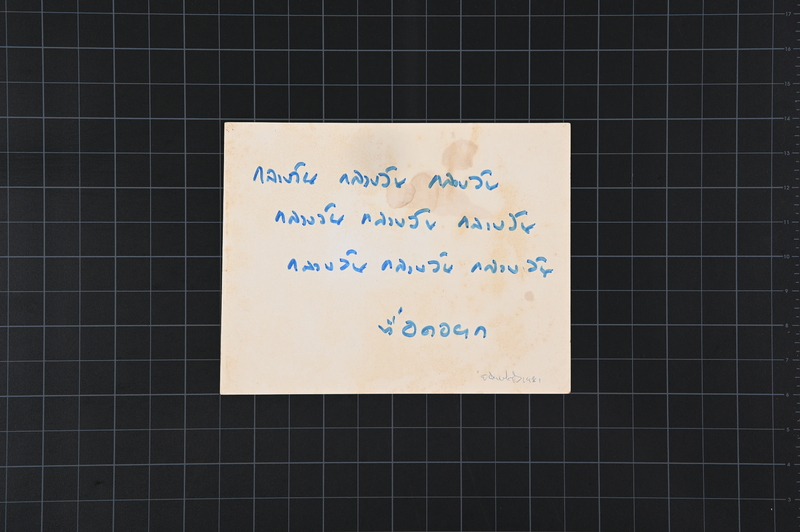 กลางวัน กลางวัน กลางวัน
กลางวัน กลางวัน กลางวัน
กลางวัน กลางวัน กลางวัน
ที่อดอยาก